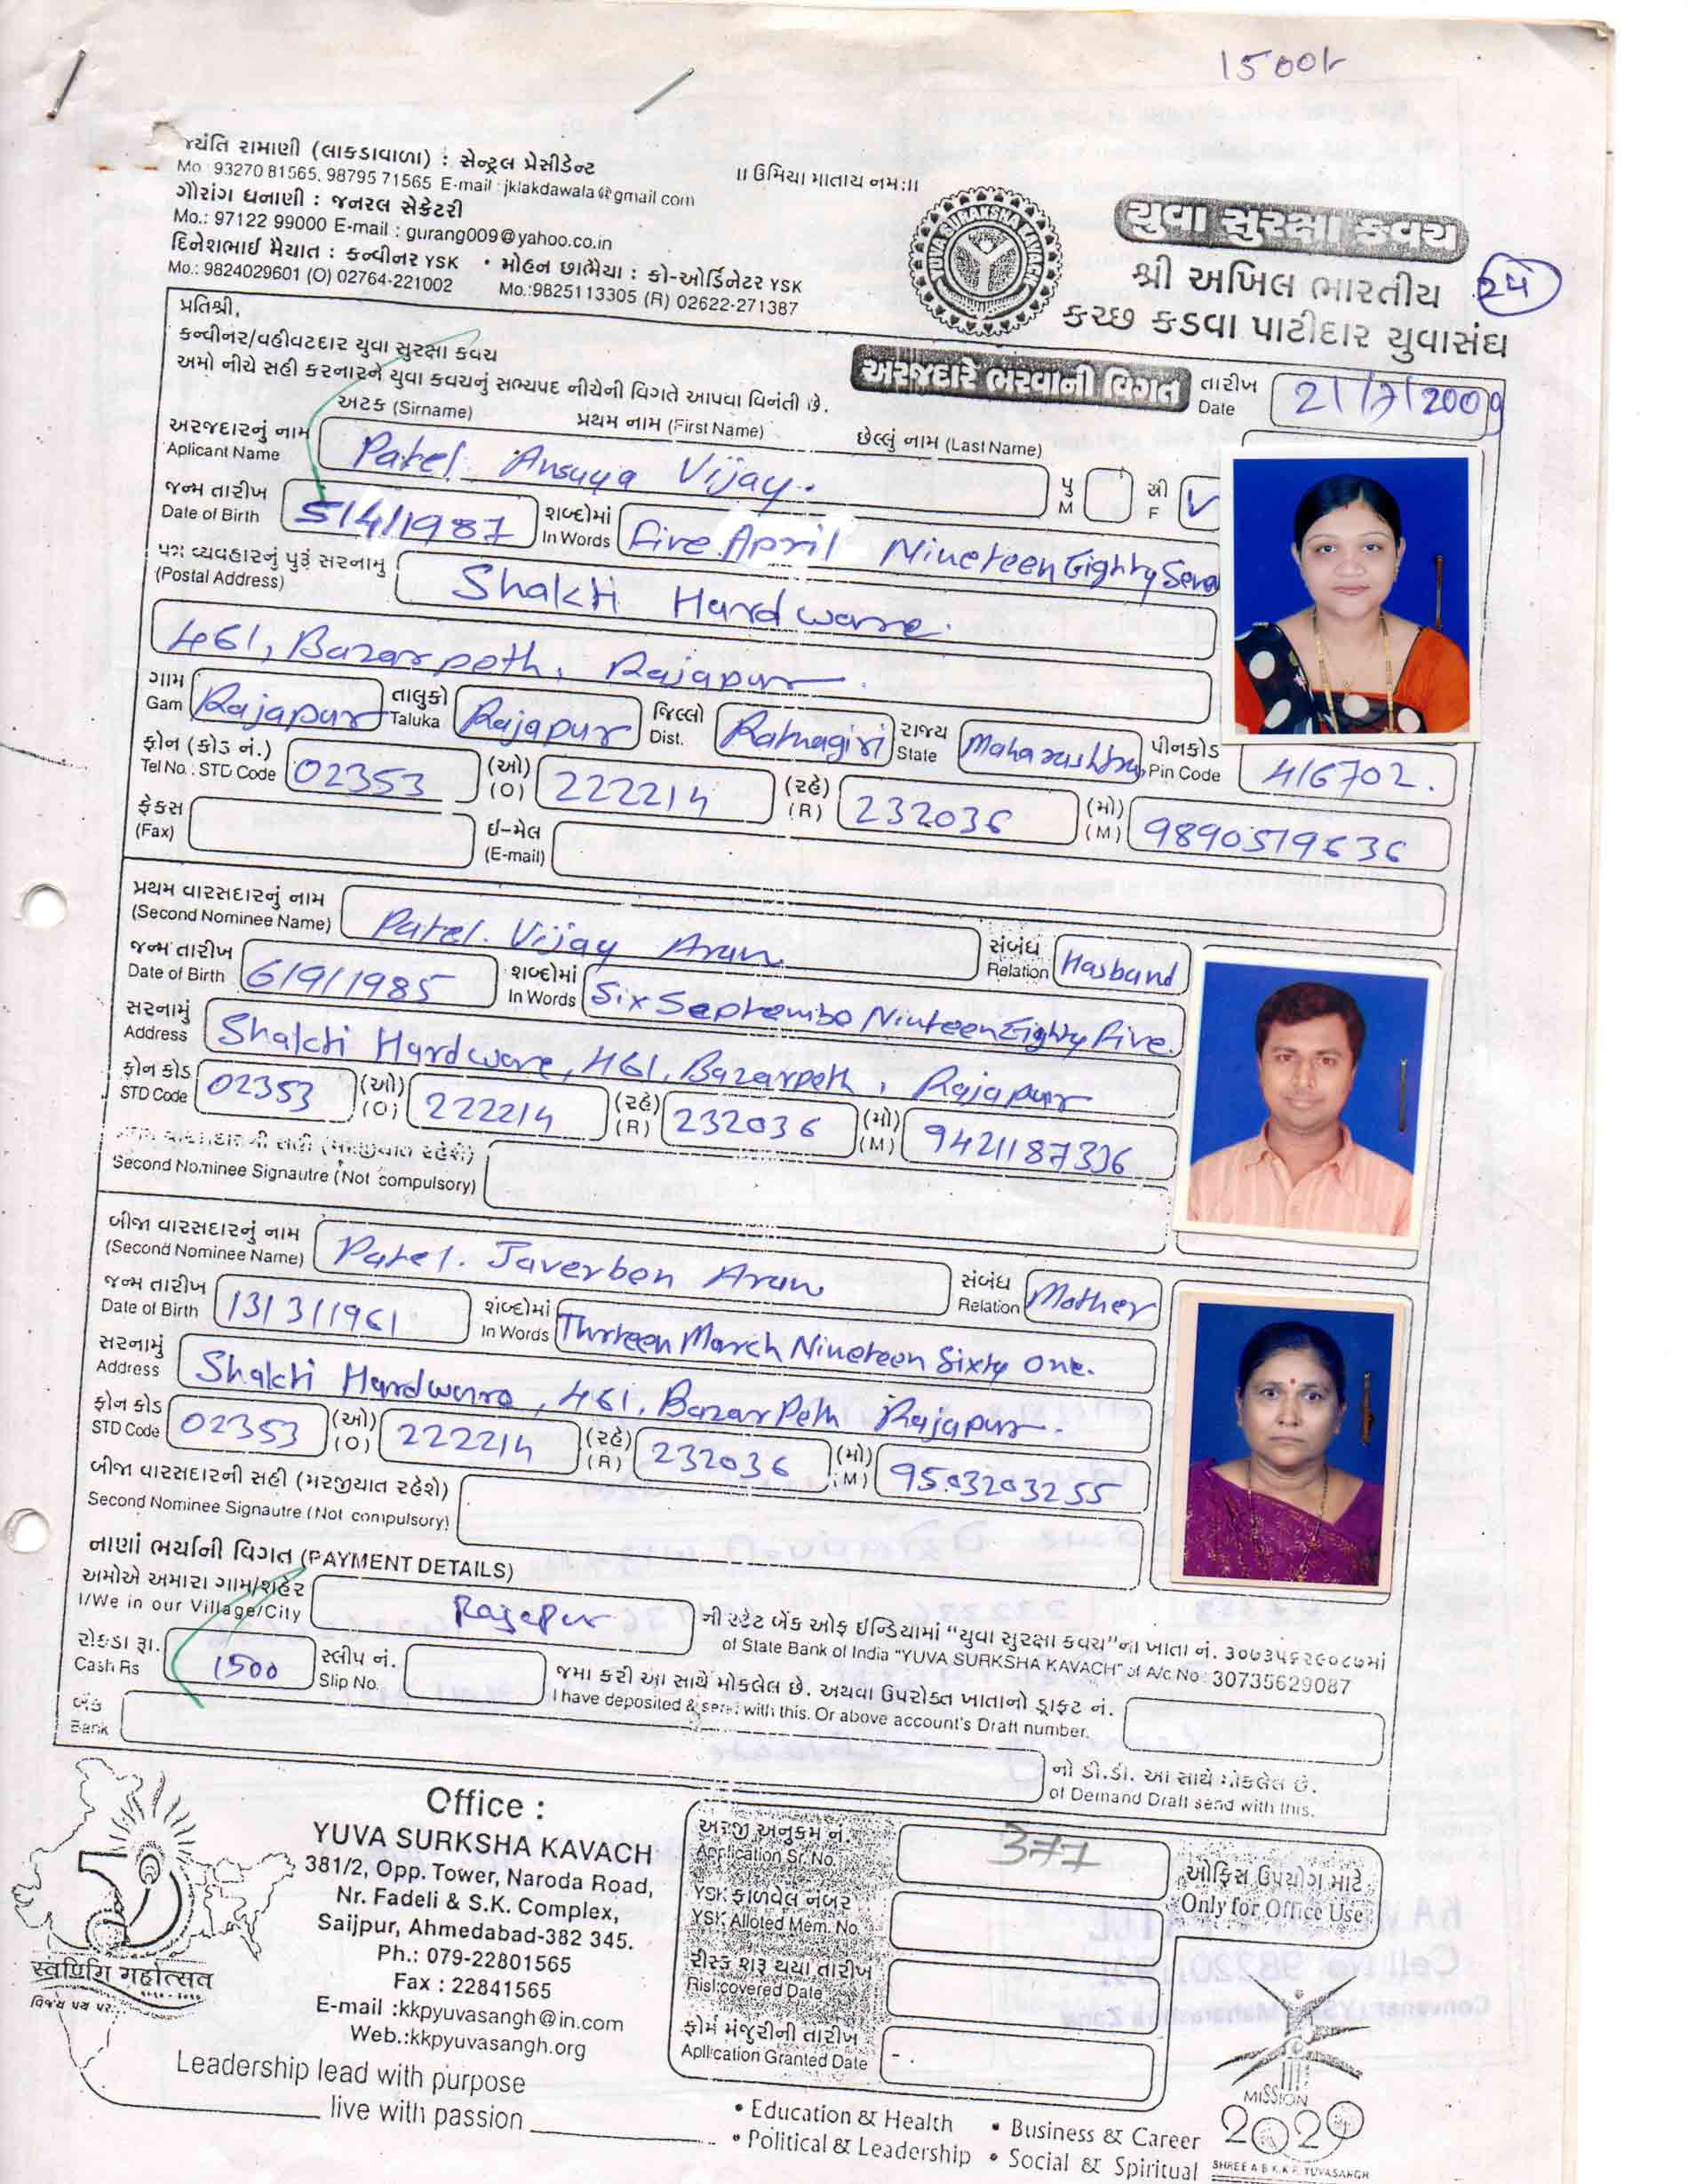 1500/-
જયંતિ રામાણી (લાકડાવાળા) : સેન્ટ્રલ પ્રેસીડેન્ટ
Mo : 93270 81565, 98795 71565 E-mail : jklakdawala@gmail.com
ગૌરાંગ ધનાણી : જનરલ સેક્રેટરી
Mo.: 97122 99000 E-mail : gurang009@yahoo.co.in
દિનેશભાઈ મૈયાત : કન્વીનર YSK • મોહન છાભૈયા : કો-ઓર્ડિનેટર YSK
Mo.: 9824029601 (O) 02764-221002 Mo.:9825113305 (R) 02622-271387
॥ ઉમિયા માતાય નમ:॥
YUVA SURAKSHA KAVACH
યુવા સુરક્ષા કવચ
શ્રી અખિલ ભારતીય
કચ્છ કડવા પાટીદાર યુવાસંઘ
પ્રતિશ્રી,
કન્વીનર/વહીવટદાર યુવા સુરક્ષા કવચ
અમો નીચે સહી કરનારને યુવા કવચનું સભ્યપદ નીચેની વિગતે આપવા વિનંતી છે.
અરજદારે ભરવાની વિગત
તારીખ
Date 21/7/2009
અટક (Sirname) પ્રથમ નામ (First Name) છેલ્લું નામ (Last Name)
અરજદારનું નામ
Aplicant Name Patel Ansuya Vijay.
પુ M સ્રી F ✓
જન્મ તારીખ
Date of Birth 5/4/1987 શબ્દોમાં In Words Five April Nineteen Eighty Seven
પત્ર વ્યવહારનું પુરૂં સરનામુ
(Postal Address) Shakti Hardware.
461, Bazarpeth, Rajapur.
ગામ Gam Rajapur તાલુકો Taluka Rajapur જિલ્લો Dist. Ratnagiri રાજ્ય State Maharashtra પીનકોડ Pin Code 416702.
ફોન (કોડ નં.)
Tel No. : STD Code 02353 (ઓ) (O) 222214 (રહે) (R) 232036 (મો) (M) 9890519636
ફેકસ
(Fax) ઈ-મેલ (E-mail)
પ્રથમ વારસદારનું નામ
(Second Nominee Name) Patel. Vijay Arun સંબંધ Relation Hasband
જન્મ તારીખ
Date of Birth 6/9/1985 શબ્દોમાં In Words Six Septembe Ninteen Eighty Five.
સરનામું
Address Shakti Hardware, 461, Bazarpeth, Rajapur
ફોન કોડ
STD Code 02353 (ઓ) (O) 222214 (રહે) (R) 232036 (મો) (M) 9421187336
વારસદારની સહી (મરજીયાત રહેશે)
Second Nominee Signautre (Not compulsory)
બીજા વારસદારનું નામ
(Second Nominee Name) Patel. Javerben Arun સંબંધ Relation Mother
જન્મ તારીખ
Date of Birth 13/3/1961 શબ્દોમાં In Words Thrteen March Nineteen Sixty One.
સરનામું
Address Shakti Hardware, 461, Bazar Peth Rajapur.
ફોન કોડ
STD Code 02353 (ઓ) (O) 222214 (રહે) (R) 232036 (મો) (M) 9503203255
બીજા વારસદારની સહી (મરજીયાત રહેશે)
Second Nominee Signautre (Not compulsory)
નાણાં ભર્યાની વિગત (PAYMENT DETAILS)
અમોએ અમારા ગામ/શહેર
I/We in our Village/City Rajapur
ની સ્ટેટ બેંક ઓફ ઈન્ડિયામાં “યુવા સુરક્ષા કવચ”ના ખાતા નં. ૩૦૭૩૫૬૨૯૦૮૭માં
of State Bank of India "YUVA SURKSHA KAVACH" of A/c No : 30735629087
રોકડા રૂા.
Cash Rs 1500 સ્લીપ નં. Slip No.
જમા કરી આ સાથે મોકલેલ છે. અથવા ઉપરોક્ત ખાતાનો ડ્રાફટ નં.
I have deposited & send with this. Or above account's Draft number.
બેંક
Bank
નો ડી.ડી. આ સાથે મોકલેલ છે.
of Demand Draft send with this.
Office :
YUVA SURKSHA KAVACH
381/2, Opp. Tower, Naroda Road,
Nr. Fadeli & S.K. Complex,
Saijpur, Ahmedabad-382 345.
Ph.: 079-22801565
Fax : 22841565
E-mail :kkpyuvasangh@in.com
Web.:kkpyuvasangh.org
Leadership lead with purpose
live with passion
અરજી અનુક્રમ નં.
Application Sr. No. 377
YSK ફાળવેલ નંબર
YSK Alloted Mem. No.
રીસ્ક શરૂ થયા તારીખ
Risk covered Date
ફોર્મ મંજુરીની તારીખ
Apllication Granted Date
ઓફિસ ઉપયોગ માટે
Only for Office Use
• Education & Health • Business & Career
• Political & Leadership • Social & Spiritual
MISSION
2020
SHREE A.B.K.K.P. YUVASANGH